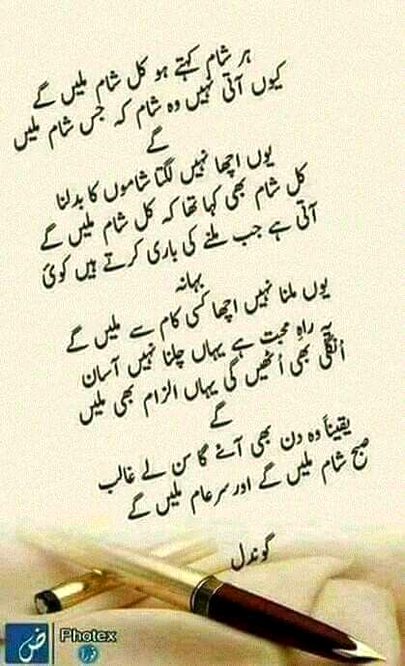 ہر شام کہتے ہو کل شام ملیں گے
کیوں آتی نہیں وہ شام کہ جس شام ملیں
گے
یوں اچھا نہیں لگتا شاموں کا بدلنا
کل شام بھی کہا تھا کہ کل شام ملیں گے
آتی ہے جب ملنے کی باری کرتے ہیں کوئ
بہانہ
یوں ملنا نہیں اچھا کسی کام سے ملیں گے
یہ راہِ محبت ہے یہاں چلنا نہیں آسان
اُنگلی بھی اُٹھیں گی یہاں الزام بھی ملیں
گے
یقیناً وہ دن بھی آئے گا سن لے غالب
صبح شام ملیں گے اور سرعام ملیں گے
گوندل
ض Photex